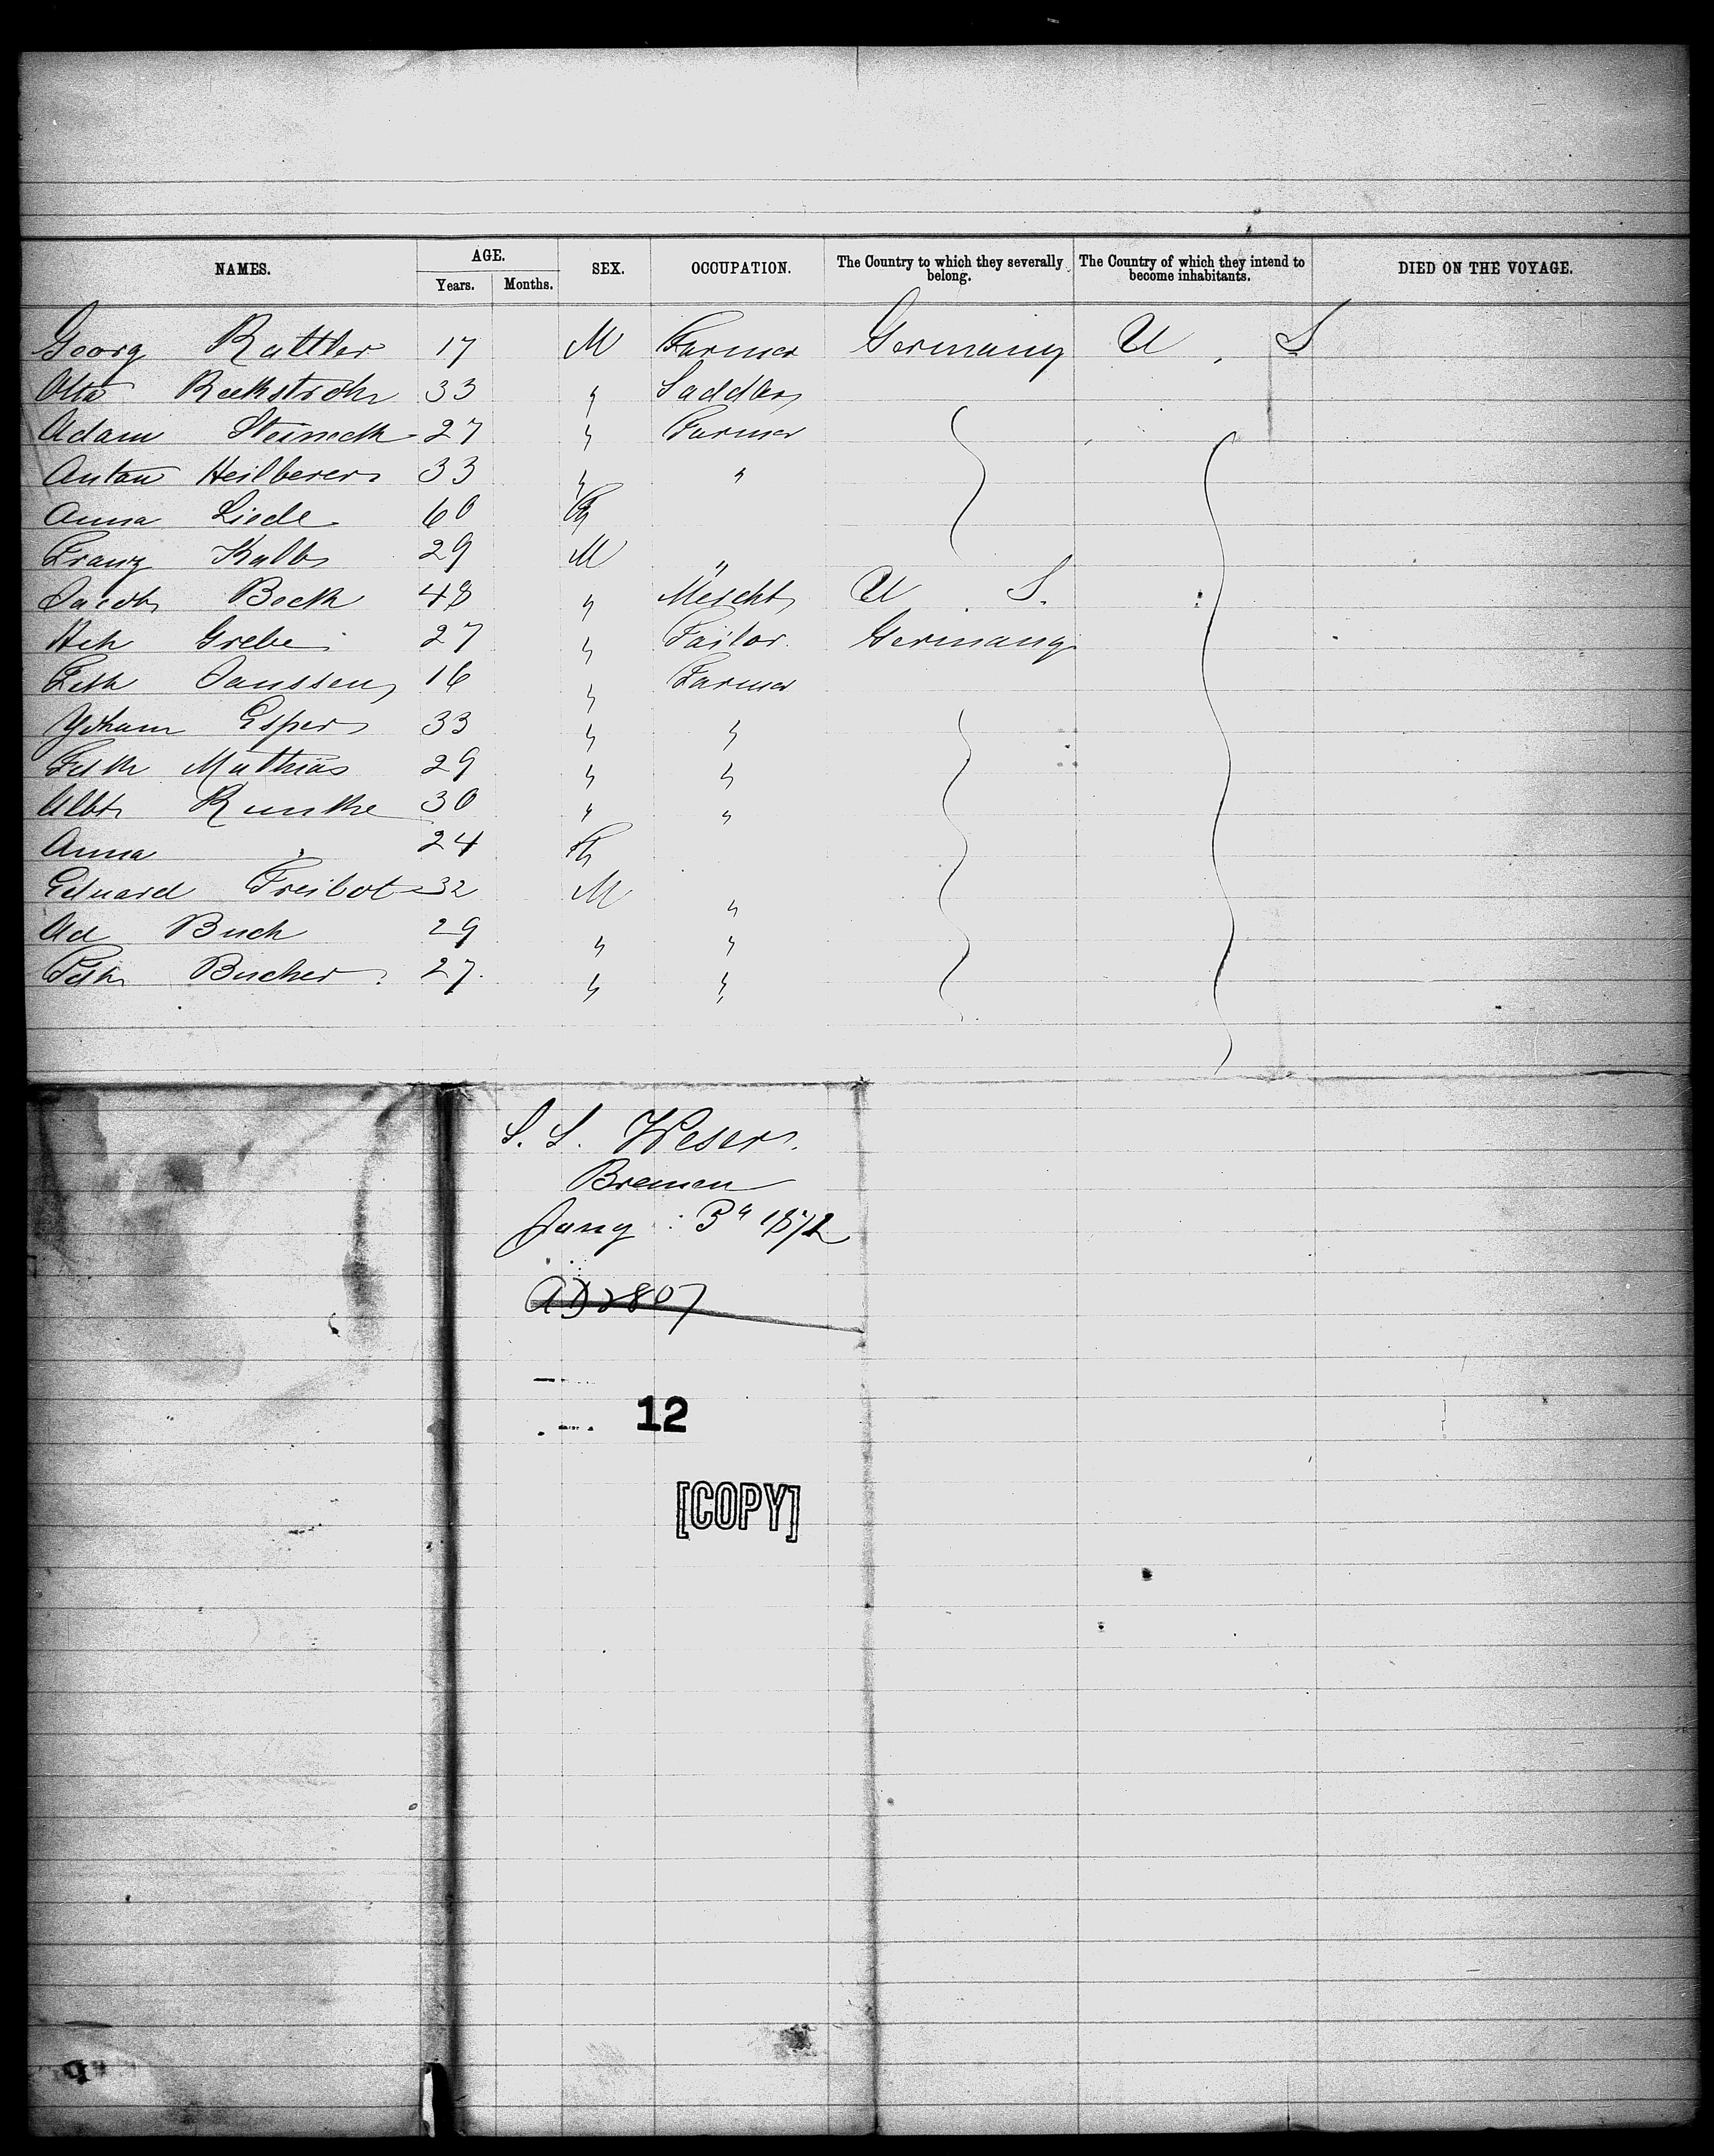 NAMES. AGE. SEX. OCCUPATION. The Country to which they severally belong. The Country of which they intend to become inhabitants. DIED ON THE VOYAGE.
Years. Months.
Georg Rattler 17 M Farmer Germany U. S
Otto Reckstroh 33 " Saddler
Adam Steineck 27 " Farmer
Anton Heilberer 33 " "
Anna Liede 60 F
Franz Kalb 29 M "
Jacob Bock 48 " Mescht U. S.
Hch Grebe 27 " Tailor. Germany
Janssen 16 " Farmer
Esper 33 " "
Mathias 29 " "
Albt Runke 30 " "
Anna " 24 F
Eduard Freibot 32 M "
Ad Buch 29 " "
Bucher 27. " "
S. S. Weser.
Bremen
Jany 3" 1872
AD2807
12
[COPY]